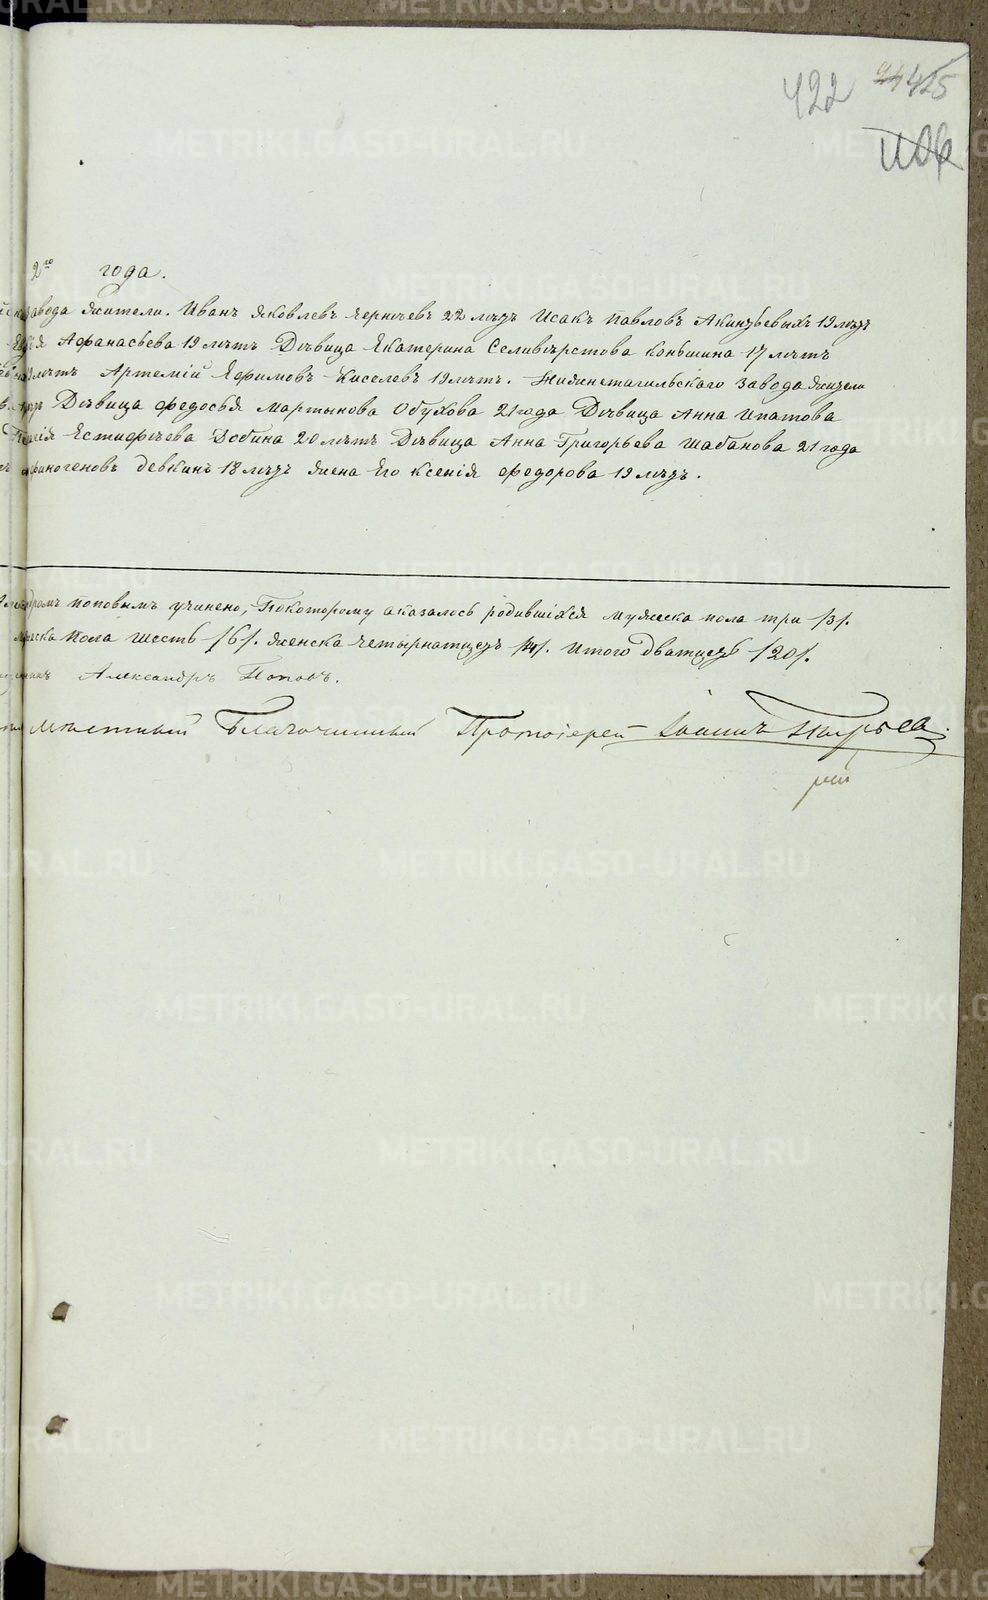 422 425
2го года.
завода жители. Иванъ Яковлевъ черноевъ 22 летъ Исакъ Павловъ Акинѳьевыхъ 19 летъ
Афанасьева 19 летъ Девица Екатерина Селивёрстова Коньшина 17 летъ
летъ Артемій Ефимовъ Киселевъ 19 летъ. Нижнетагильскаго завода жители
Девица Федосья Мартынова Обухова 21 года Девица Анна Ипатова
Естифеева Зобина 20 летъ Девица Анна Григорьева Шабанова 21 года
финогеновъ девкинъ 18 летъ жена Его Ксенія Федорова 19 летъ.
поповымъ учинено, Покоторому аказалось родившихся мужеска пола три /3/.
пола шесть /6/. женска четырнатцеть /14/. Итого дватцеть /20/.
Александръ Поповъ.
местный Благочинный Протоіерей Іоаннъ
METRIKI.GASO-URAL.RU